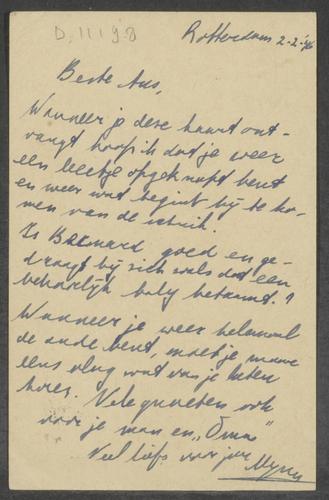 D.1119B
Rotterdam 2-2-'46
Beste Aus,
Wanneer je deze kaart ont-
vangt hoop ik dat je weer
een beetje opgeknapt bent
en weer wat begint bij te ko-
men van de schrik.
Is Bernard goed en ge-
draagt hij zich zoals dat een
behoorlijk baby betaamt?
Wanneer je weer helemaal
de oude bent, moet je maar
eens vlug wat van je laten
horen. Vele groeten ook
voor je man en „Oma"
Veel liefs voor jou